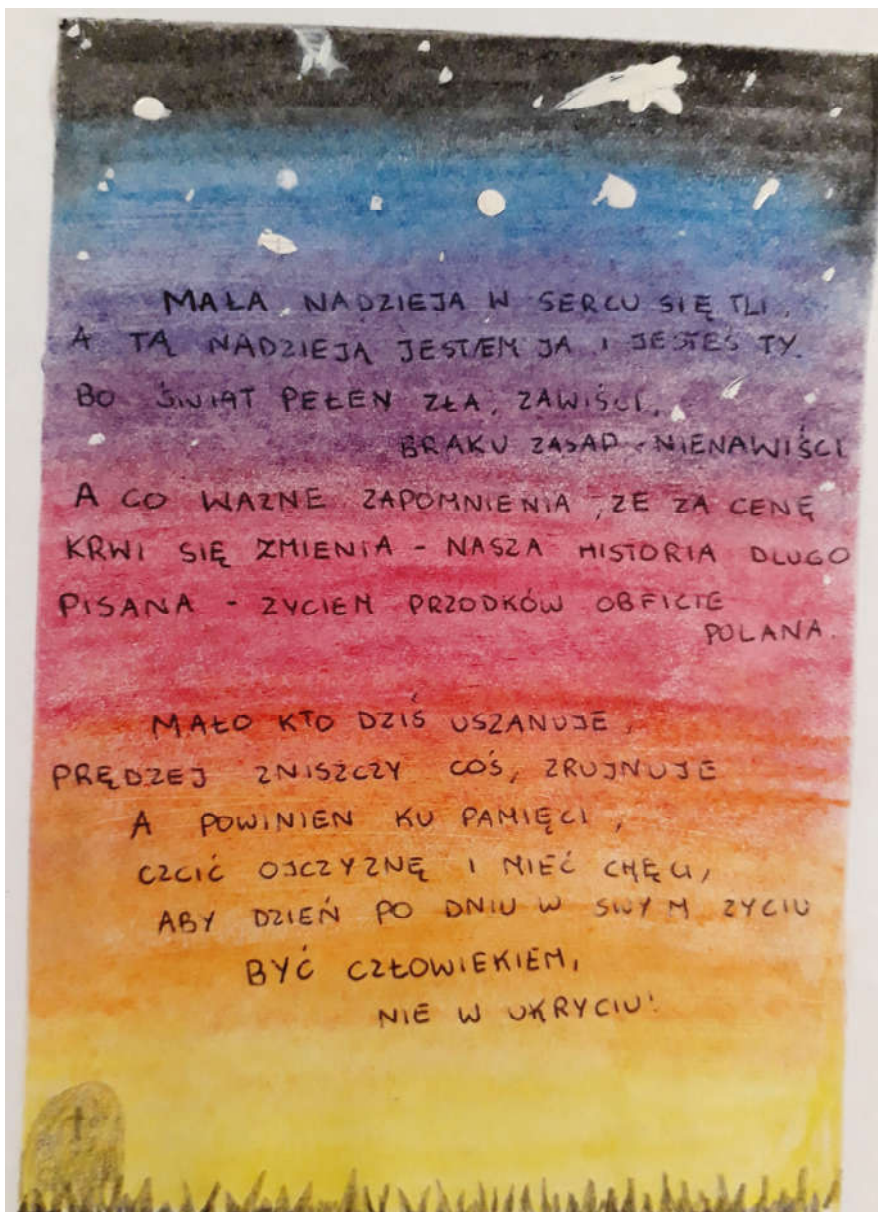 MAŁA NADZIEJA W SERCU SIĘ TLI,
A TĄ NADZIEJĄ JESTEM JA I JESTEŚ TY.
BO ŚWIAT PEŁEN ZŁA, ZAWIŚCI,
BRAKU ZASAD - NIENAWIŚCI
A CO WAŻNE ZAPOMNIENIA, ŻE ZA CENĘ
KRWI SIĘ ZMIENIA - NASZA HISTORIA DLUGO
PISANA - ZYCIEM PRZODKÓW OBFICIE
POLANA.
MAŁO KTO DZIŚ USZANUJE,
PRĘDZEJ ZNISZCZY COŚ, ZRUJNUJE
A POWINIEN KU PAMIĘCI,
CZCIĆ OJCZYZNĘ I MIEĆ CHĘCI,
ABY DZIEŃ PO DNIU W SWYM ZYCIU
BYĆ CZŁOWIEKIEM,
NIE W UKRYCIU!